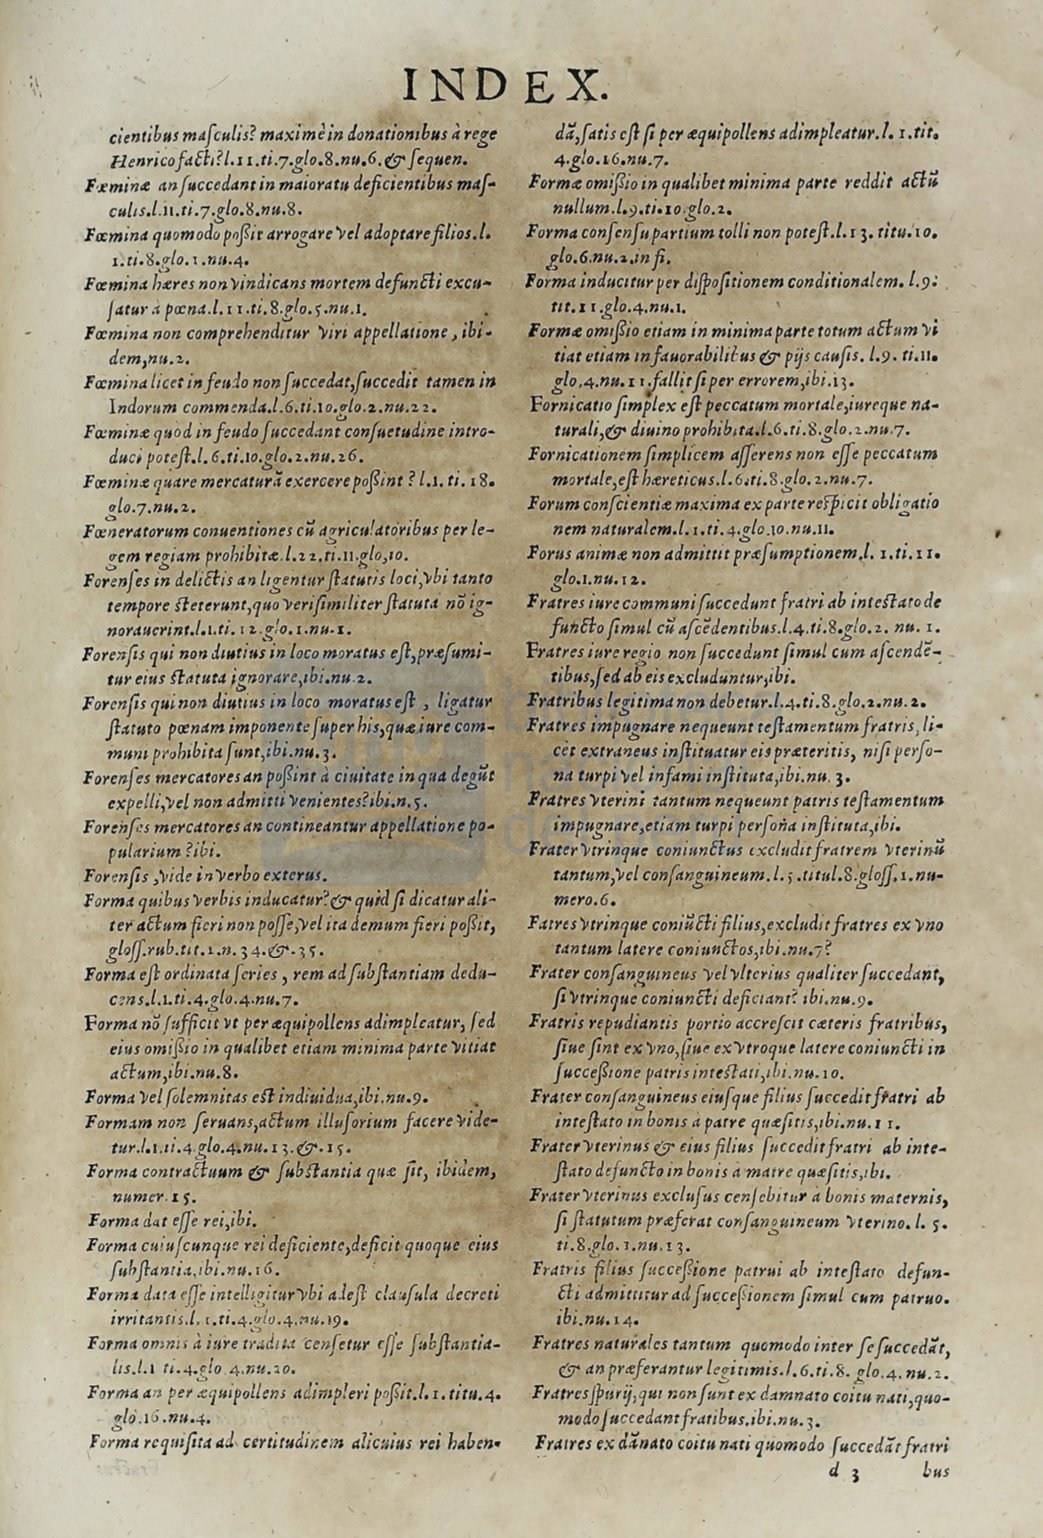 INDEX.
cientibus maſculis? maximè in donationibus à rege
Henrico facti? l.11.ti.7.glo.8.nu.6.& ſequen.
Fœminæ an ſuccedant in maioratu deficientibus maſ-
culis.l.11.ti.7.glo.8.nu.8.
Fœmina quomodo poßit arrogare vel adoptare filios.l.
1.ti.8.glo.1.nu.4.
Fœmina hæres non vindicans mortem defuncti excu-
ſatur à pœna.l.11.ti.8.glo.5.nu.1.
Fœmina non comprehenditur viri appellatione, ibi-
dem,nu.2.
Fœmina licet in feudo non ſuccedat,ſuccedit tamen in
Indorum commenda.l.6.ti.10.glo.2.nu.22.
Fœminæ quòd in feudo ſuccedant conſuetudine intro-
duci poteſt.l.6.ti.10.glo.2.nu.26.
Fœminæ quare mercaturā exercere poßint? l.1.ti.18.
glo.7.nu.2.
Fœneratorum conuentiones cū agriculatoribus per le-
gem regiam prohibitæ.l.22.ti.11.glo,10.
Forenſes in delictis an ligentur ſtatutis loci,vbi tanto
tempore ſteterunt,quo veriſimiliter ſtatuta nō ig-
norauerint.l.1.ti.12.glo.1.nu.1.
Forenſis qui non diutius in loco moratus eſt,præſumi-
tur eius ſtatuta ignorare,ibi.nu.2.
Forenſis qui non diutius in loco moratus eſt, ligatur
ſtatuto pœnam imponente ſuper his,quæ iure com-
muni prohibita ſunt,ibi.nu.3.
Forenſes mercatores an poßint à ciuitate in qua degūt
expelli,vel non admitti venientes?ibi.n.5.
Forenſes mercatores an contineantur appellatione po-
pularium?ibi.
Forenſis,vide in verbo exterus.
Forma quibus verbis inducatur?& quid ſi dicatur ali-
ter actum fieri non poſſe,vel ita demum fieri poßit,
gloſſ.rub.tit.1.n.34.&.35.
Forma eſt ordinata ſeries, rem ad ſubſtantiam dedu-
cens.l.1.ti.4.glo.4.nu.7.
Forma nō ſufficit vt per æquipollens adimpleatur, ſed
eius omißio in qualibet etiam minima parte vitiat
actum,ibi.nu.8.
Forma vel ſolemnitas eſt indiuidua,ibi.nu.9.
Formam non ſeruans,actum illuſorium facere vide-
tur.l.1.ti.4.glo.4.nu.13.&.15.
Forma contractuum & ſubſtantia quæ ſit, ibidem,
numer.15.
Forma dat eſſe rei,ibi.
Forma cuiuſcunque rei deficiente,deficit quoque eius
ſubſtantia,ibi.nu.16.
Forma data eſſe intelligitur vbi adeſt clauſula decreti
irritantis.l.1.ti.4.glo.4.nu.19.
Forma omnis à iure tradita cenſetur eſſe ſubſtantia-
lis.l.1 ti.4.glo 4.nu.20.
Forma an per æquipollens adimpleri poßit.l.1.titu.4.
glo.16.nu.4.
Forma requiſita ad certitudinem alicuius rei haben-
dā,ſatis eſt ſi per æquipollens adimpleatur.l.1.tit.
4.glo.16.nu.7.
Formæ omißio in qualibet minima parte reddit actū
nullum.l.9.ti.10.glo.2.
Forma conſenſu partium tolli non poteſt.l.13.titu.10.
glo.6.nu.2.in fi.
Forma inducitur per diſpoſitionem conditionalem. l.9:
tit.11.glo.4.nu.1.
Formæ omißio etiam in minima parte totum actum vi
tiat etiam in fauorabilibus & pijs cauſis. l.9. ti.11.
glo.4.nu.11.fallit ſi per errorem,ibi.13.
Fornicatio ſimplex eſt peccatum mortale,iureque na-
turali,& diuino prohibita.l.6.ti.8.glo.2.nu.7.
Fornicationem ſimplicem aſſerens non eſſe peccatum
mortale,eſt hæreticus.l.6.ti.8.glo.2.nu.7.
Forum conſcientiæ maxima ex parte reſpicit obligatio
nem naturalem.l.1.ti.4.glo.10.nu.11.
Forus animæ non admittit præſumptionem,l.1.ti.11.
glo.1.nu.12.
Fratres iure communi ſuccedunt fratri ab inteſtato de
functo ſimul cū aſcēdentibus.l.4.ti.8.glo.2. nu. 1.
Fratres iure regio non ſuccedunt ſimul cum aſcendē-
tibus,ſed ab eis excluduntur,ibi.
Fratribus legitima non debetur.l.4.ti.8.glo.2.nu.2.
Fratres impugnare nequeunt teſtamentum fratris,li-
cèt extraneus inſtituatur eis præteritis, niſi perſo-
na turpi vel infami inſtituta,ibi.nu. 3.
Fratres vterini tantum nequeunt patris teſtamentum
impugnare,etiam turpi perſona inſtituta,ibi.
Frater vtrinque coniunctus excludit fratrem vterinū
tantum,vel conſanguineum.l.5.titul.8.gloſſ.1.nu-
mero.6.
Fatres vtrinque coniūcti filius,excludit fratres ex vno
tantum latere coniunctos,ibi.nu.7?
Frater conſanguineus vel vlterius qualiter ſuccedant,
ſi vtrinque coniuncti deficiant? ibi.nu.9.
Fratris repudiantis portio accreſcit cæteris fratribus,
ſiue ſint ex vno,ſiue ex vtroque latere coniuncti in
ſucceßione patris inteſtati,ibi.nu.10.
Frater conſanguineus eiuſque filius ſuccedit fratri ab
inteſtato in bonis à patre quæſitis,ibi.nu.11.
Frater vterinus & eius filius ſuccedit fratri ab inte-
ſtato defuncto in bonis a matre quæſitis,ibi.
Frater vterinus excluſus cenſebitur a bonis maternis,
ſi ſtatutum præferat conſanguineum vterino. l. 5.
ti.8.glo.1.nu.13.
Fratris filius ſucceßione patrui ab inteſtato defun-
cti admittitur ad ſucceßionem ſimul cum patruo.
ibi.nu.14.
Fratres naturales tantum quomodo inter ſe ſuccedāt,
& an præferantur legitimis.l.6.ti.8. glo.4.nu.2.
Fratres ſpurij,qui non ſunt ex damnato coitu nati,quo-
modo ſuccedant fratibus.ibi.nu.3.
Fratres ex dānato coitu nati quomodo ſuccedāt fratri
d 3 bus